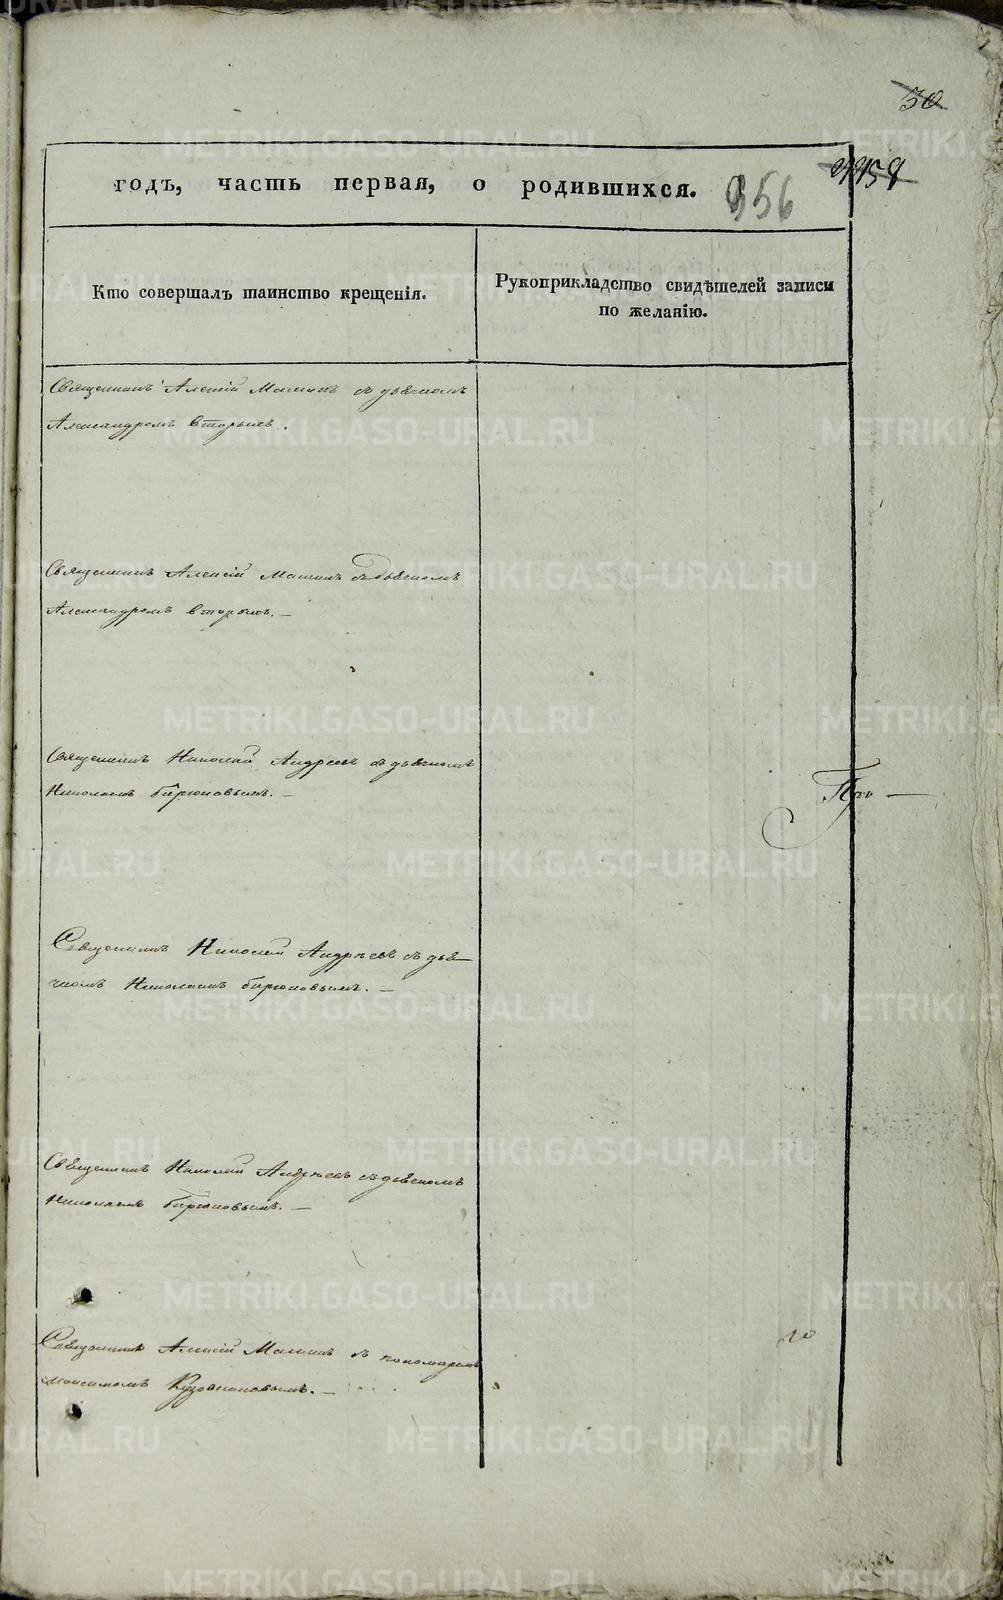 30
годъ, часть первая, о родившихся.
356
Кто совершалъ таинство крещенія.
Рукоприкладство свидѣтелей записи
по желанію.
Священникъ Алексій Маминъ съ дьячкомъ
Александромъ Вторымъ.
Священникъ Алексій Маминъ съ дьячкомъ
Александромъ Вторымъ. —
Священникъ Николай Андреевъ съ дьячкомъ
Николаемъ Бирюковымъ. —
Священникъ Николай Андреевъ съ дья-
чкомъ Николаемъ Бирюковымъ. —
Священникъ Николай Андреевъ съ дьячкомъ
Николаемъ Бирюковымъ. —
Священникъ Алексій Маминъ съ пономаремъ
Максимомъ Кузовниковымъ. —
METRIKI.GASO-URAL.RU